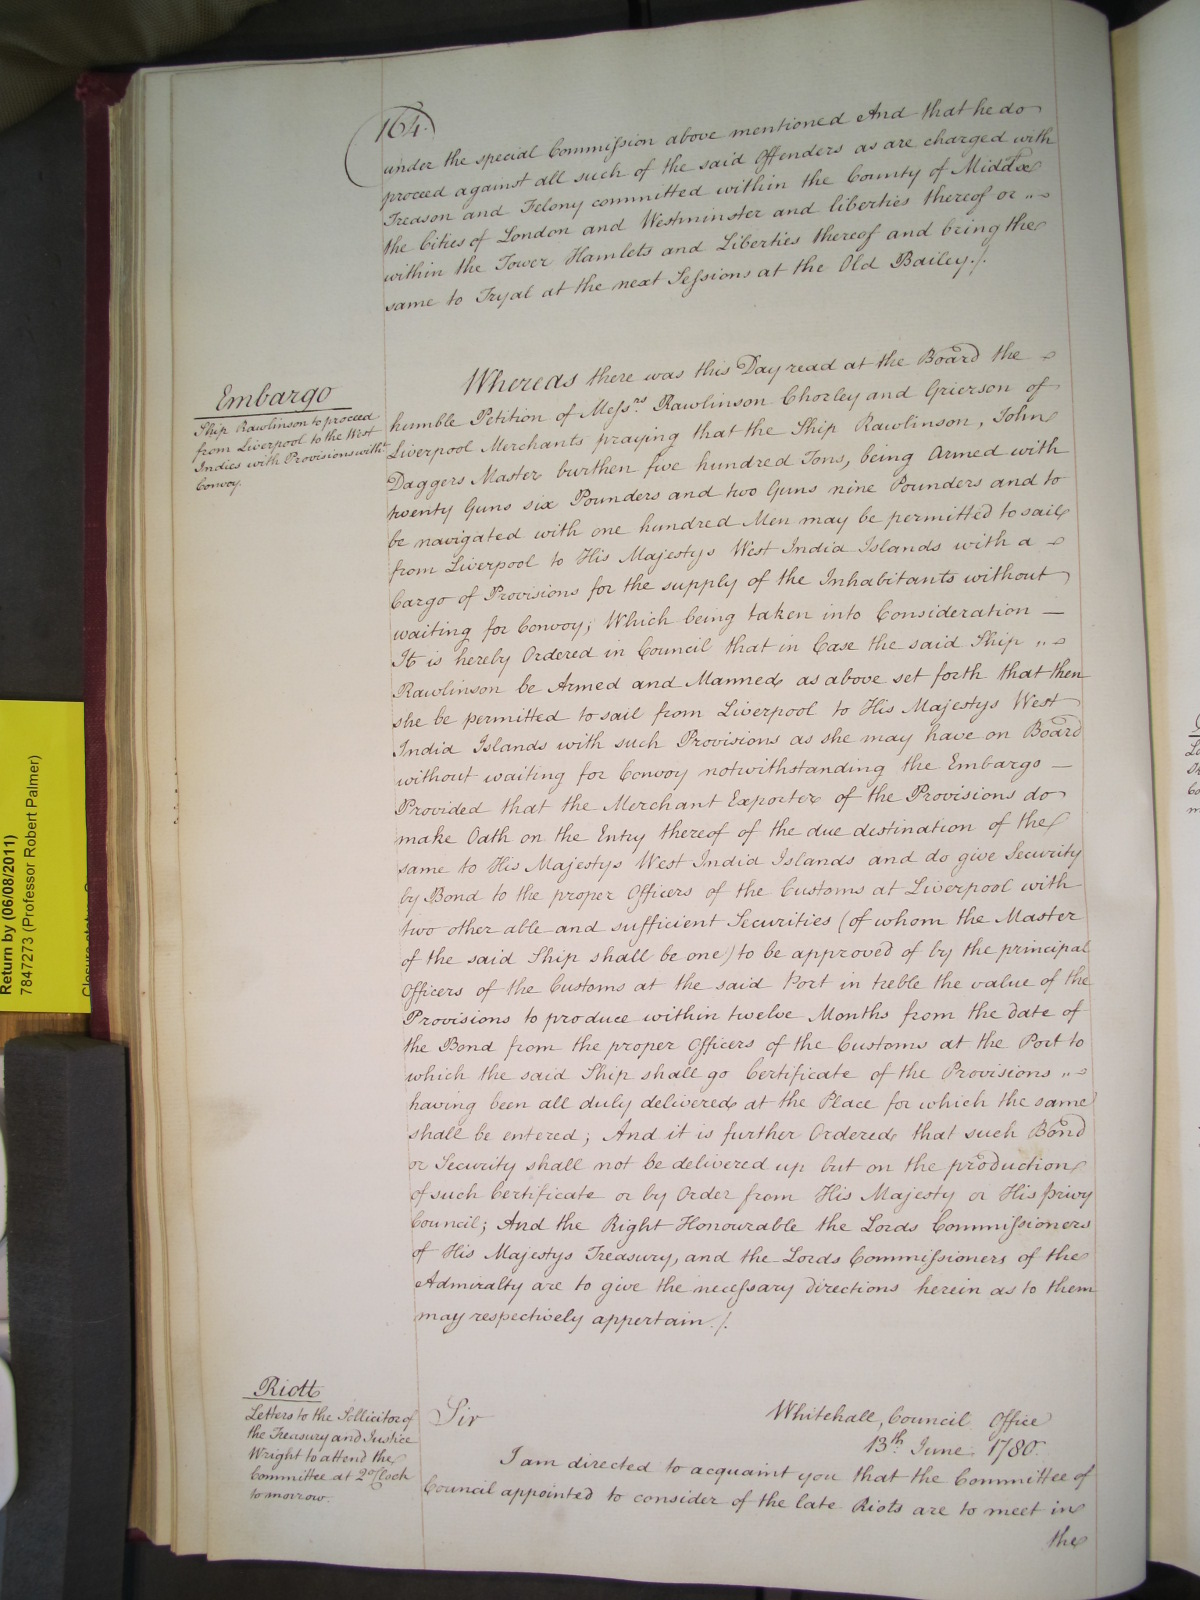 164.
under the special Commission above mentioned And that he do
proceed against all such of the said Offenders as are charged with
Treason and Felony committed within the County of Middx
the Cities of London and Westminster and liberties thereof or
within the Tower Hamlets and Liberties thereof and bring the
same to Tryal at the next Sessions at the Old Bailey./.
Embargo
Ship Rawlinson to proceed
from Liverpool to the West
Indies with Provisions witht
Convoy.
Whereas there was this Day read at the Board the
humble Petition of Messrs. Rawlinson Chorley and Grierson of
Liverpool Merchants praying that the Ship Rawlinson, John
Daggers Master burthen five hundred Tons, being Armed with
twenty Guns six Pounders and two Guns nine Pounders and to
be navigated with one hundred Men may be permitted to sail
from Liverpool to His Majestys West India Islands with a
Cargo of Provisions for the supply of the Inhabitants without
waiting for Convoy; Which being taken into Consideration —
It is hereby Ordered in Council that in Case the said Ship
Rawlinson be Armed and Manned as above set forth that then
she be permitted to sail from Liverpool to His Majestys West
India Islands with such Provisions as she may have on Board
without waiting for Convoy notwithstanding the Embargo —
Provided that the Merchant Exporter of the Provisions do
make Oath on the Entry thereof of the due destination of the
same to His Majestys West India Islands and do give Security
by Bond to the proper Officers of the Customs at Liverpool with
two other able and sufficient Securities (of whom the Master
of the said Ship shall be one) to be approved of by the principal
Officers of the Customs at the said Port in treble the value of the
Provisions to produce within twelve Months from the date of
the Bond from the proper Officers of the Customs at the Port to
which the said Ship shall go Certificate of the Provisions
having been all duly delivered at the Place for which the same
shall be entered; And it is further Ordered that such Bond
or Security shall not be delivered up but on the production
of such Certificate or by Order from His Majesty or His privy
Council; And the Right Honourable the Lords Commissioners
of His Majestys Treasury, and the Lords Commissioners of the
Admiralty are to give the necessary Directions herein as to them
may respectively appertain ./.
Riott
Letters to the Sollicitor of
the Treasury and Justice
Wright to attend the
Committee at 2 oClock
tomorrow.
Sir
Whitehall, Council Office
13th. June 1780.
I am directed to acquaint you that the Committee of
Council appointed to consider of the late Riots are to meet in
the
Return by (06/08/2011)
7847273 (Professor Robert Palmer)